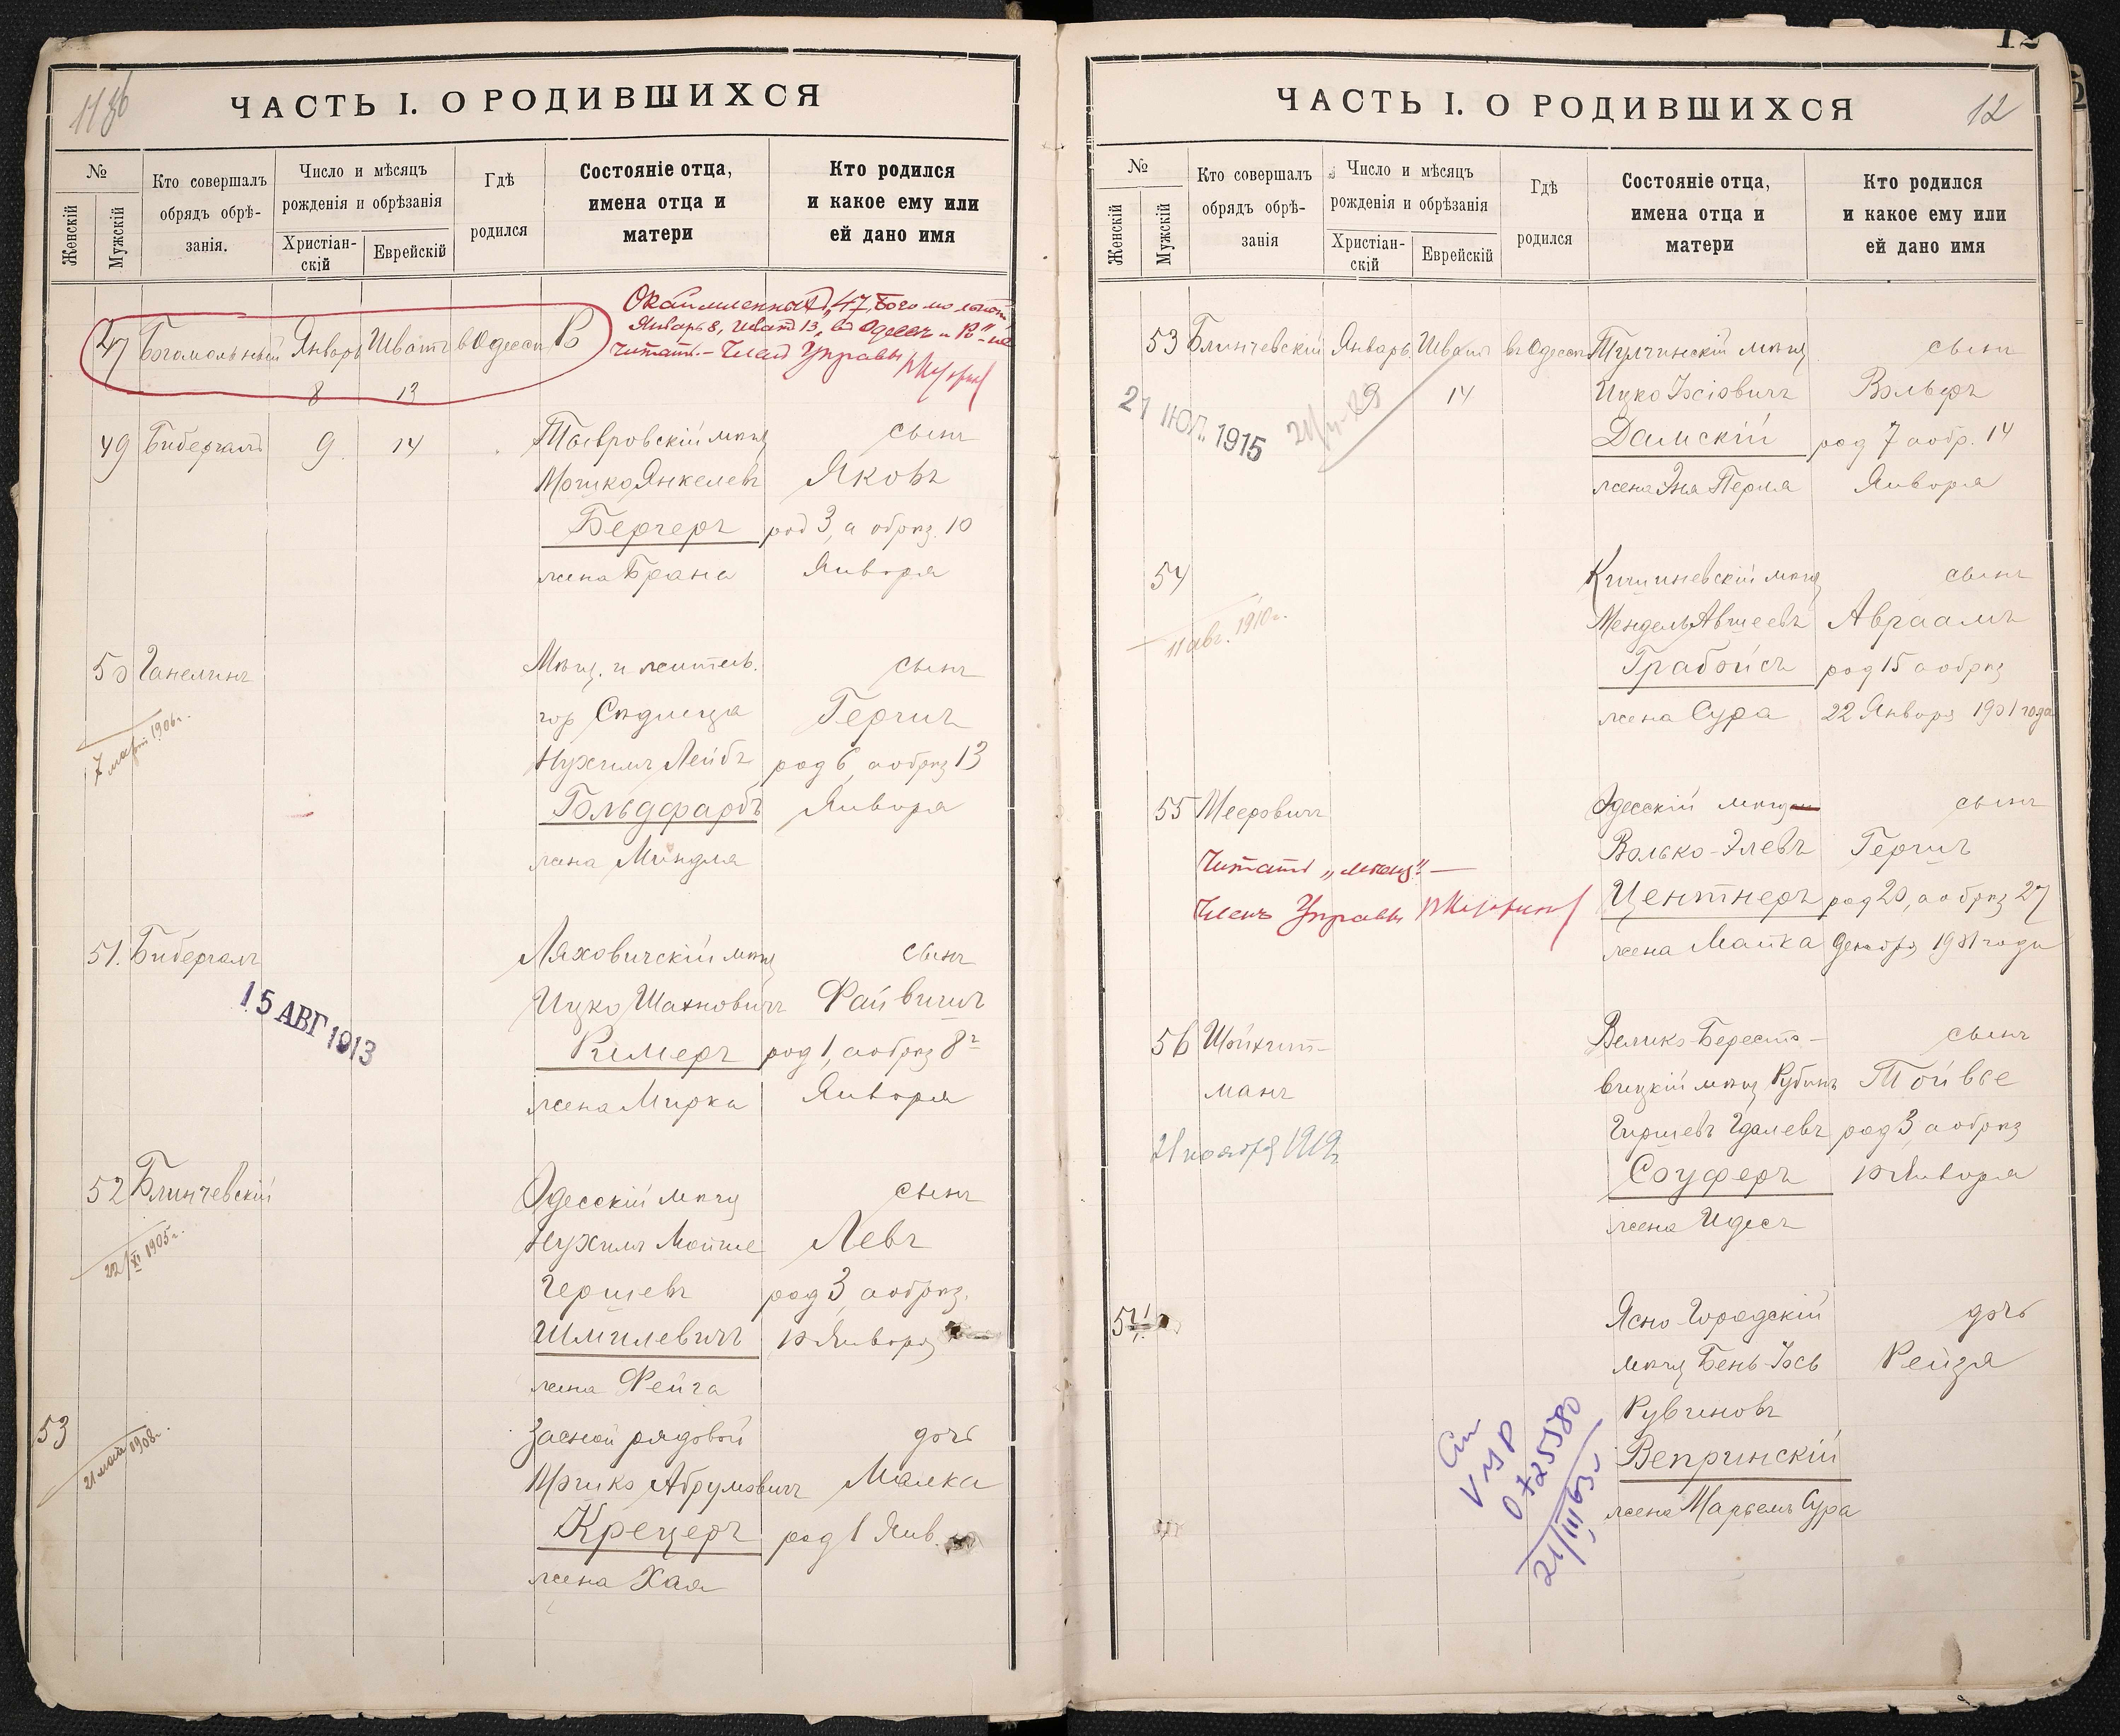 1186
ЧАСТЬ I. О РОДИВШИХСЯ
№
Женскій
Мужскій
Кто совершалъ
обрядъ обрѣ-
занія.
Число и мѣсяцъ
рожденія и обрѣзанія
Христіан-
скій
Еврейскій
Гдѣ
родился
Состояніе отца,
имена отца и
матери
Кто родился
и какое ему или
ей дано имя
47 Богомольный Январь Шватъ въ Одессѣ
8 13
Январь 8, Шватъ 13, въ Одессѣ и
читать. – Членъ Управы
49 Бибергалъ 9 14 мѣщ сынъ
Мошко Янкелевъ Яковъ
Бергеръ род 3, а обрѣз. 10
жена Брана Января
50 Ганелинъ Мѣщ. и жител. сынъ
гор Гершъ
7 март 1906 г.
Нухимъ Лейбъ род 6, а обрѣз 13
Гольдфарбъ Января
жена Миндля
51. Бибергалъ Ляховичскій мѣщ сынъ
15 АВГ 1913
Ицко Шахновичъ Файвишъ
Римеръ род 1, а обрѣз 8
жена Мирка Января
52 Блинчевскій Одесскій мѣщ сынъ
22/XI 1905 г.
Нухимъ Мойше Левъ
Гершевъ род 3, а обрѣз.
Шмилевичъ 10 Января
жена Фейга
53 рядовой дочь
21 май 1908 г.
Мошко Абрумовичъ Малка
Крецеръ род 1 Янв.
жена Хая
12
ЧАСТЬ I. О РОДИВШИХСЯ
12
№
Женскій
Мужскій
Кто совершалъ
обрядъ обрѣ-
занія
Число и мѣсяцъ
рожденія и обрѣзанія
Христіан-
скій
Еврейскій
Гдѣ
родился
Состояніе отца,
имена отца и
матери
Кто родился
и какое ему или
ей дано имя
53 Блинчевскій Январь Шватъ въ Одессѣ Тулчинскій мѣщ сынъ
14 Ицко Іосіовичъ Вольфъ
21 ИЮЛ. 1915
Дамскій род 7 а обр. 14
жена Эна Перля Января
54 Кишиневскій мѣщ сынъ
11 авг. 1910 г.
Мендель Авшеевъ Авраамъ
Грабойсъ род 15 а обрѣз
жена Сура 22 Января 1901 года
55 Мееровичъ Одесскій сынъ
Волько-Элевъ Гершъ
Читать „мѣщ“ –
Центнеръ род 20, а обрѣз 27
Членъ Управы
жена Малка Декабря 1901 года
56 Шойхет-
манъ
Велико-Берести- сынъ
мѣщ Рубинъ Тойвье
21 ноября 1919 г
Гершевъ Гдалевъ род 3, а обрѣз
Соуферъ 10 Января
жена Идесъ
Ясно-Городскій дочь
мѣщ Бень-Іось Рейзя
Рувиновъ
Вепринскій
жена Марьемъ Сура
0725580
21/III 63 г